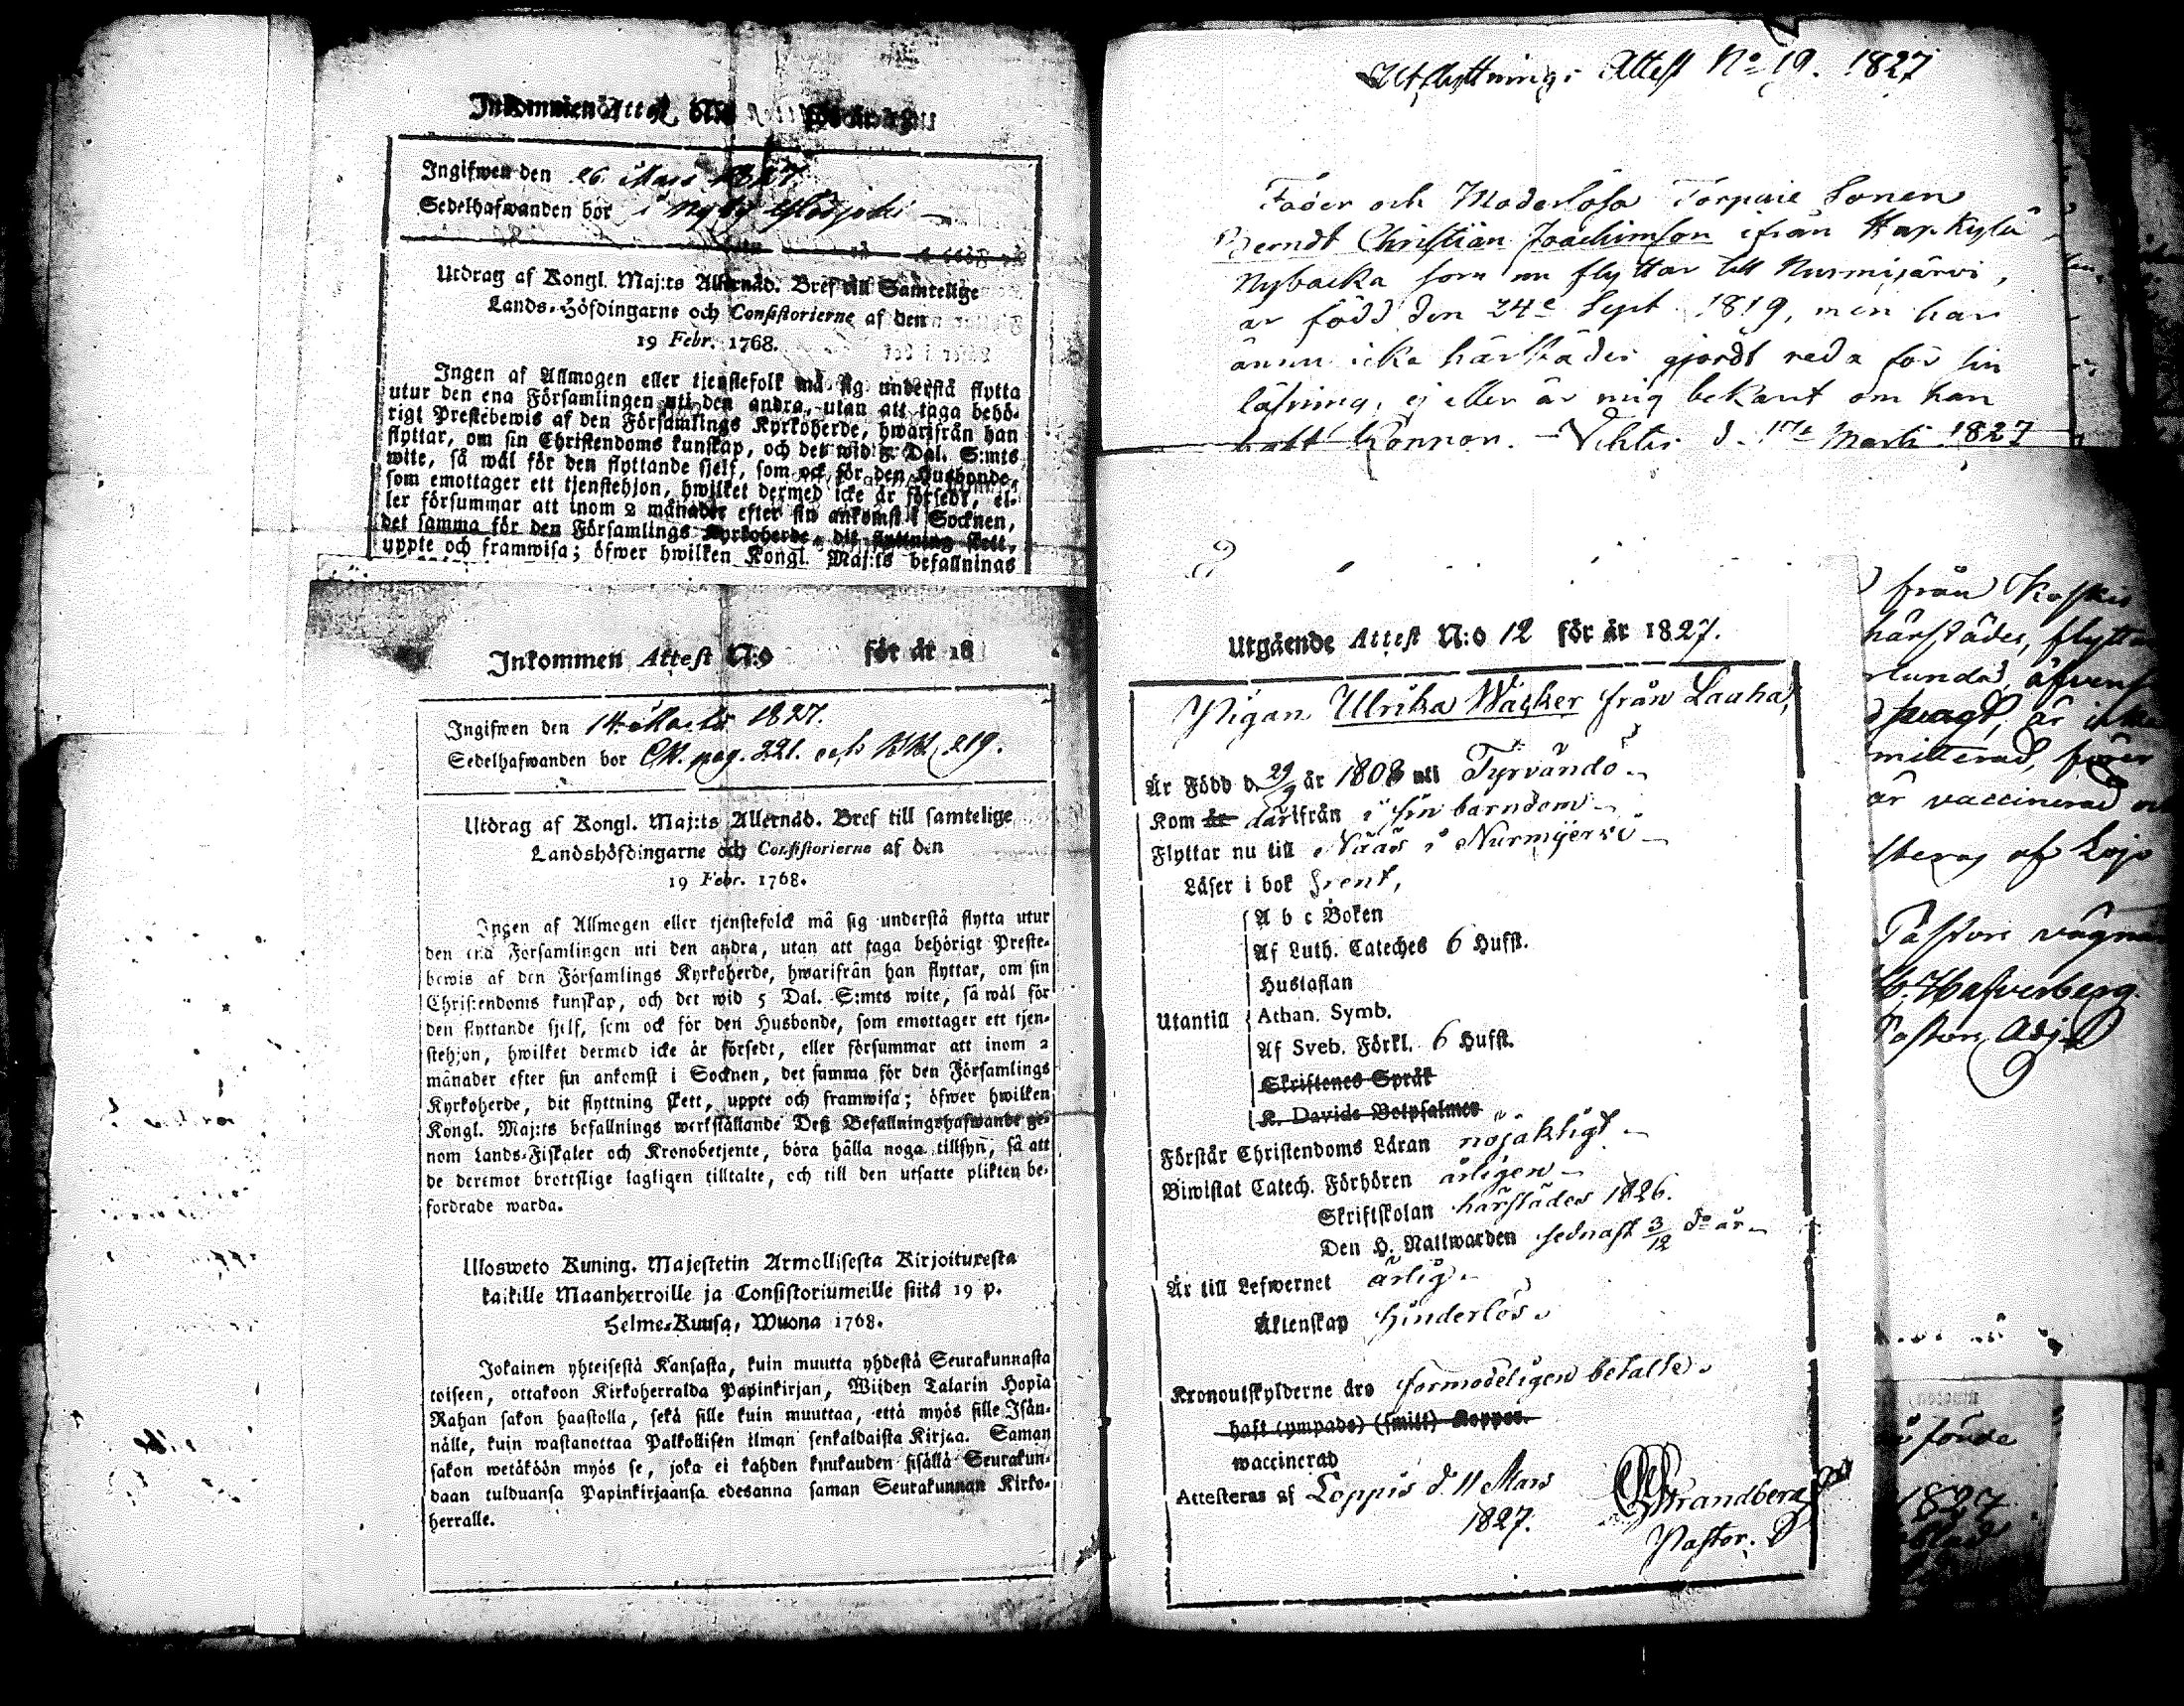 Inkommen Attest N:o för år 18
Ingifwen den 26 Mars 1827.
Sedelhafwanden bor i Nyby
Utdrag af Kongl. Maj:ts Allernåd. Bref till Samtelige
Lands-Höfdingarne och Consistorierne af den
19 Febr. 1768.
Ingen af Allmogen eller tjenstefolk må sig understå flytta
utur den ena Församlingen uti den andra, utan att taga behö-
rigt Prestebewis af den Församlings Kyrkoherde, hwarifrån han
flyttar, om sin Christendoms kunskap, och det wid 5 Dal. S:mts
wite, så wäl för den flyttande sjelf, som ock för den Husbonde,
som emottager ett tjenstehjon, hwilket dermed icke är försedt, el-
ler försummar att inom 2 månader efter sin ankomst i Socknen,
det samma för den Församlings Kyrkoherde, dit flyttning skett,
uppte och framwisa; öfwer hwilken Kongl. Maj:ts befallnings
Inkommen Attest N:o för år 18
Ingifwen den 14 Martii 1827.
Sedelhafwanden bor CB. pag. 221. och KK 219.
Utdrag af Kongl. Maj:ts Allernåd. Bref till samtelige
Landshöfdingarne och Consistorierne af den
19 Febr. 1768.
Ingen af Allmogen eller tjenstefolck må sig understå flytta utur
den ena Församlingen uti den andra, utan att taga behörigt Preste-
bewis af den Församlings Kyrkoherde, hwarifrån han flyttar, om sin
Christendoms kunskap, och det wid 5 Dal. S:mts wite, så wäl för
den flyttande sjelf, som ock för den Husbonde, som emottager ett tjen-
stehjon, hwilket dermed icke är försedt, eller försummar att inom 2
månader efter sin ankomst i Socknen, det samma för den Församlings
Kyrkoherde, dit flyttning skett, uppte och framwisa; öfwer hwilken
Kongl. Maj:ts befallnings werkställande Deß Befallningshafwande ge-
nom Lands-Fiskaler och Kronobetjente, böra hålla noga tillsyn, så att
de deremot brottslige lagligen tilltalte, och till den utsatte plikten be-
fordrade warda.
Ulosweto Kuning. Majestetin Armollisesta Kirjoituxesta
kaikille Maanherroille ja Consistoriumeille siitä 19 p.
Helme-Kuusa, Wuona 1768.
Jokainen yhteisestä Kansasta, kuin muutta yhdestä Seurakunnasta
toiseen, ottakoon Kirkoherralda Papinkirjan, Wiiden Talarin Hopia
Rahan sakon haastolla, sekä sille kuin muuttaa, että myös sille Isän-
nälle, kuin wastanottaa Palkollisen ilman senkaldaista Kirjaa. Saman
sakon wetäköön myös se, joka ei kahden kuukauden sisällä Seurakun-
daan tulduansa Papinkirjaansa edesanna saman Seurakunnan Kirko-
herralle.
Utflyttnings Attest No 19. 1827
Fader och Moderlösa Torpare Sonen
Berndt Christian Joachimson ifrån Hap. Kylä
Nybacka som nu flyttar till Nurmijärvi,
är född den 24e Sept 1819, men har
ännu icke härstädes gjordt reda för sin
läsning, ej eller är mig bekant om han
haft Koppor. Vichtis d. 17de Martii 1827
Utgående Attest N:o 12 för år 1827.
Pigan Ulrika Wacker från Lauha,
Är Född d. 29/9 år 1808 uti Tyrvändö
Kom är därifrån i sin barndom
Flyttar nu till Nääs i Nurmijervi
Läser i bok rent,
A b c Boken
Af Luth. Cateches 6 Hufst.
Hustaflan
Utantill Athan. Symb.
Af Sveb. Förkl. 6 Hufst.
Skriftenes Språk
K. Davids Botpsalmer
Förstår Christendoms Läran nöjaktigt
Biwistat Catech. Förhören årligen
Skriftskolan härstädes 1826.
Den H. Nattwarden sednast 3/12 do år
Är till Lefwernet ärlig
Äktenskap hinderlös
Kronoutskylderne äro förmodeligen betalte
haft (ympade) (smitt) Koppor.
waccinerad
Attesteras af Loppis d. 11 Mars
1827.
Strandberg
Pastor.
från Koskis
härstädes, flyttar
är vaccinerad
af Lojo
Pastors vägnar
Hafverberg.
Pastors Adj.
1827